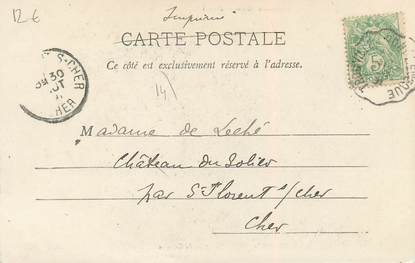 12€
Imprimé
CARTE POSTALE
Ce côté est exclusivement réservé à l'adresse.
S-CHER
30
CHER
5
14
Madame de
Château du Solier
par St Florent s/Cher
Cher